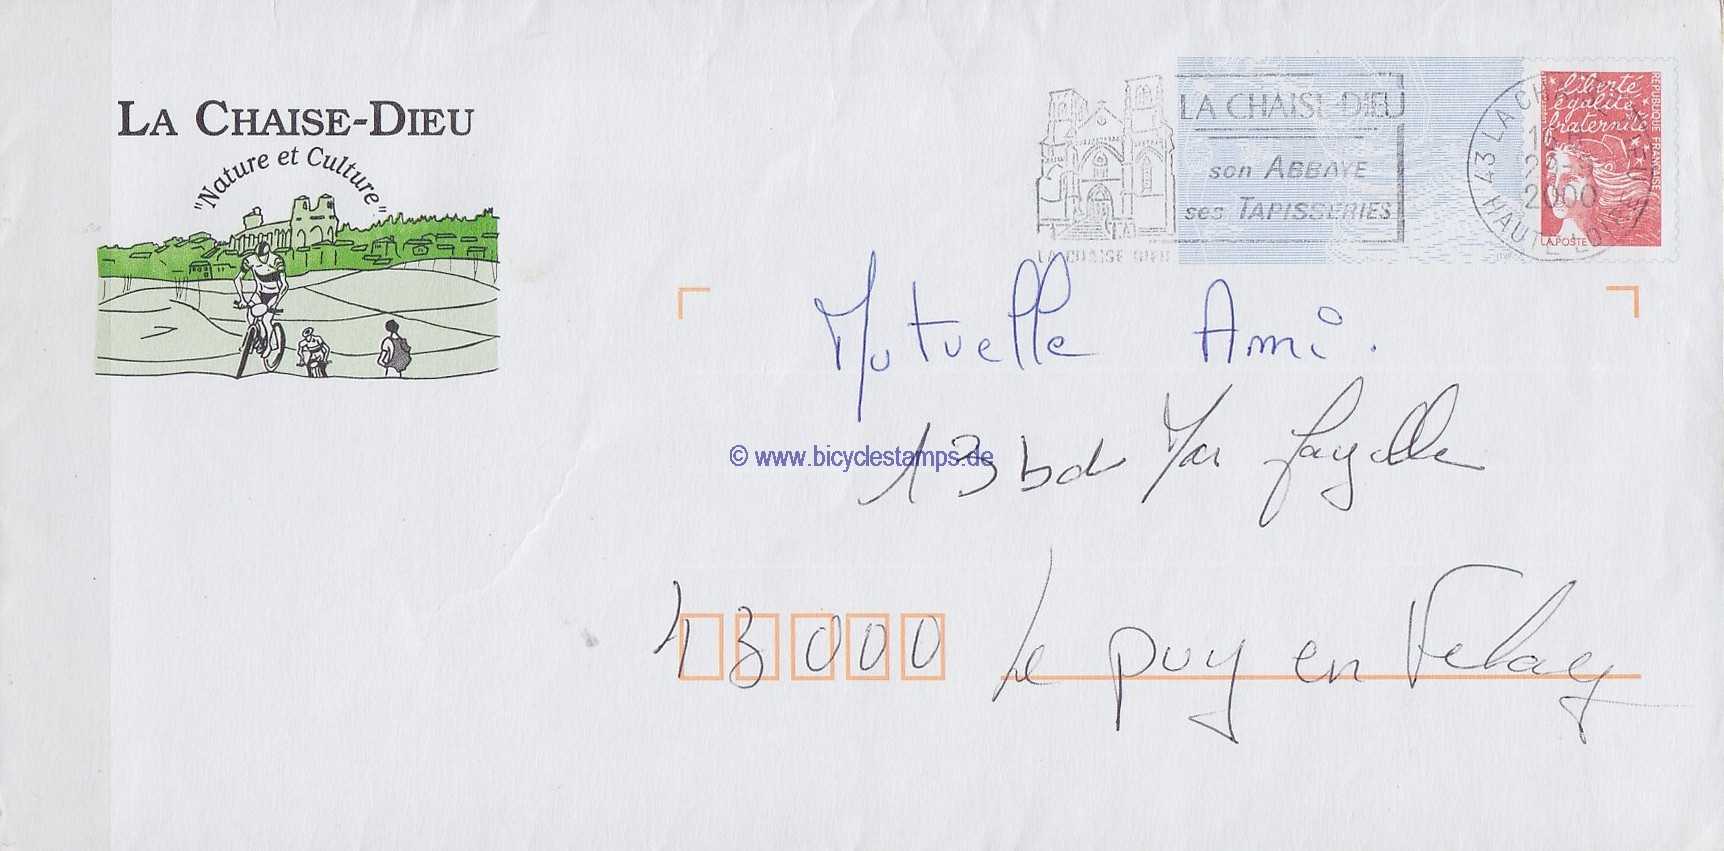 LA CHAISE-DIEU
"Nature et Culture"
LA CHAISE-DIEU
son ABBAYE
ses TAPISSERIES
LA CHAISE DIEU
43 LA CHAISE
2000
HAUTE LOIRE
liberté
égalité
fraternité
REPUBLIQUE FRANÇAISE
LA POSTE
Mutuelle Ami.
13 bd Mar fayolle
© www.bicyclestamps.de
43000 Le puy en Velay